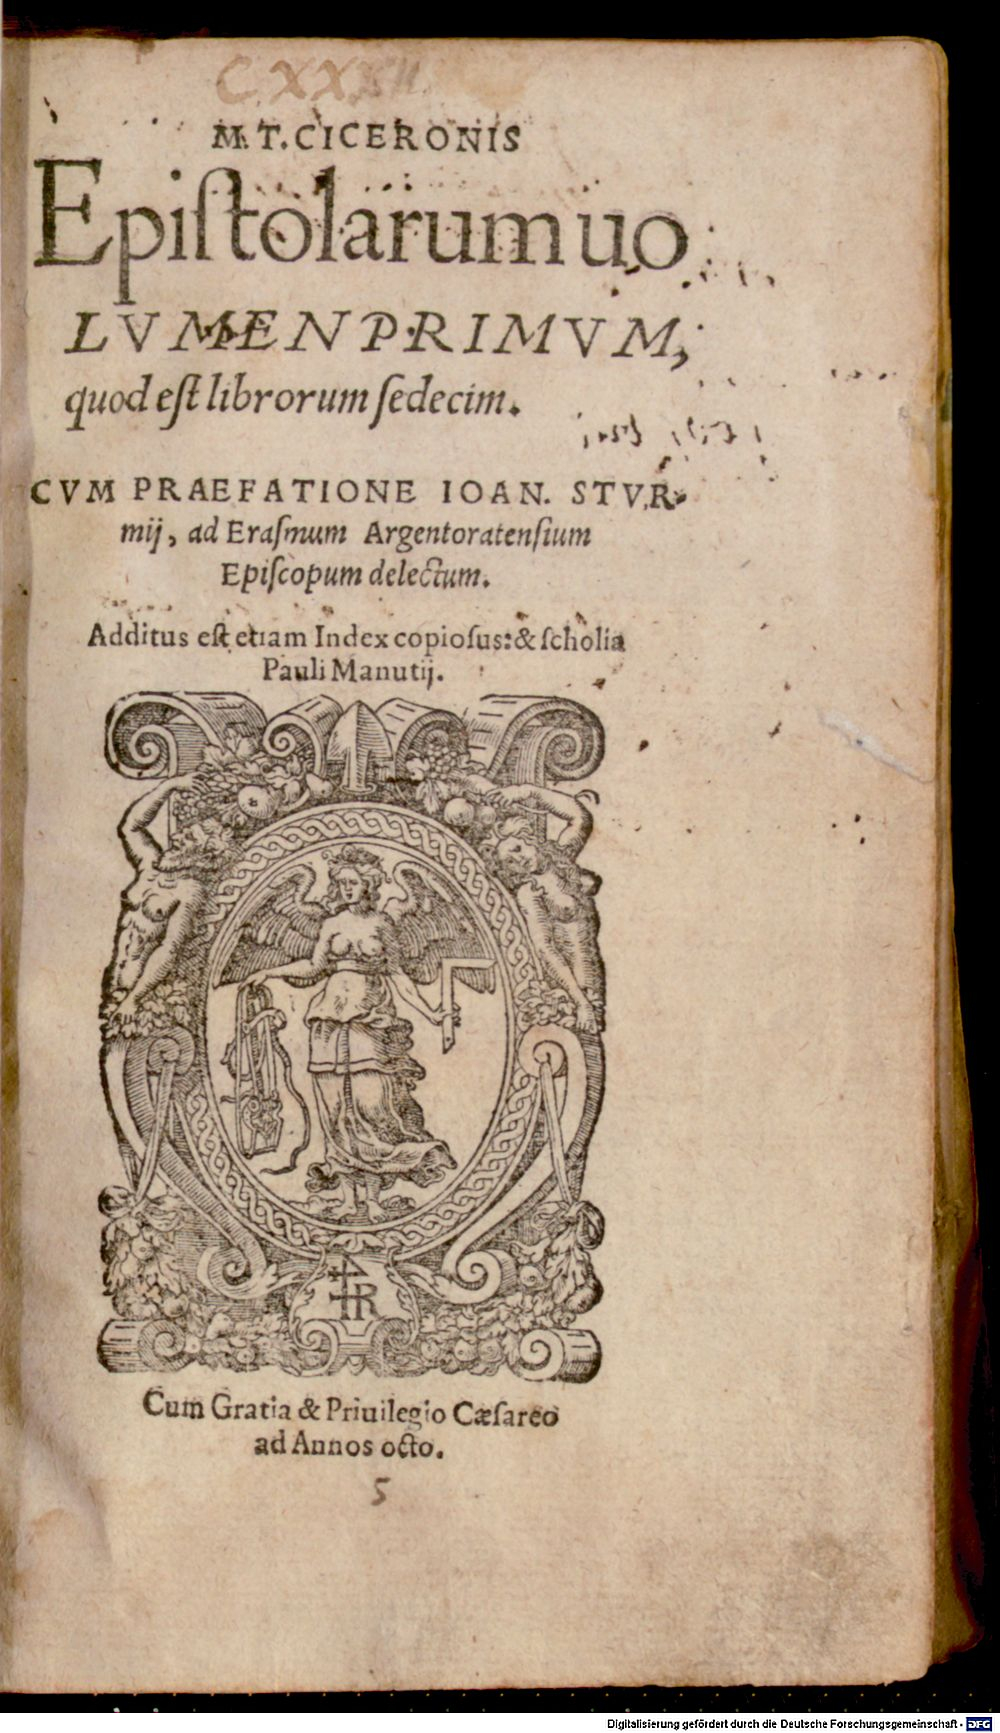 M. T. CICERONIS
Epiſtolarum uo
LVMEN PRIMVM,
quod eſt librorum ſedecim.
CVM PRAEFATIONE IOAN. STVR-
mij, ad Eraſmum Argentoratenſium
Epiſcopum delectum.
Additus eſt etiam Index copioſus: & ſcholia
Pauli Manutij.
TR
Cum Gratia & Priuilegio Cæſareo
ad Annos octo.
5
Digitalisierung gefördert durch die Deutsche Forschungsgemeinschaft - DFG